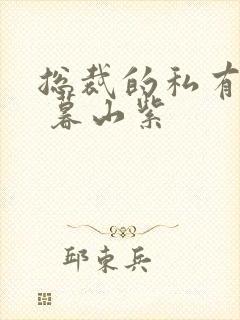 总裁的私有
暮山紫
邱东兵